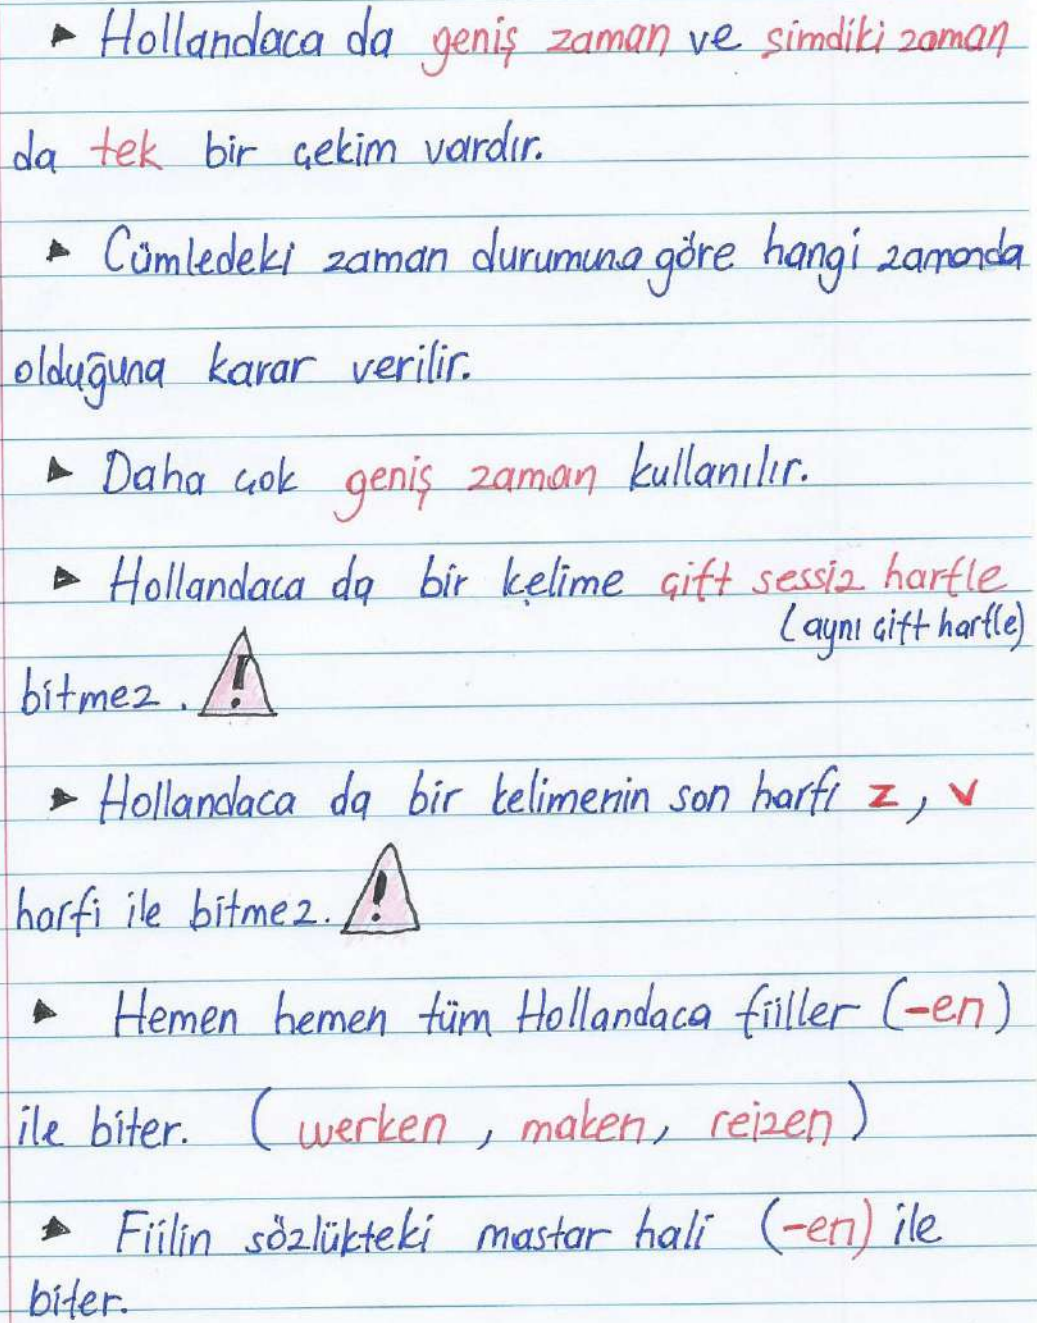 ▸ Hollandaca da geniş zaman ve şimdiki zaman
da tek bir çekim vardır.
▸ Cümledeki zaman durumuna göre hangi zamanda
olduğuna karar verilir.
▸ Daha çok geniş zaman kullanılır.
▸ Hollandaca da bir kelime çift sessiz harfle
(aynı çift harfle)
bitmez. !
▸ Hollandaca da bir kelimenin son harfi z, v
harfi ile bitmez. !
▸ Hemen hemen tüm Hollandaca fiiller (-en)
ile biter. (werken, maken, reizen)
▸ Fiilin sözlükteki mastar hali (-en) ile
biter.